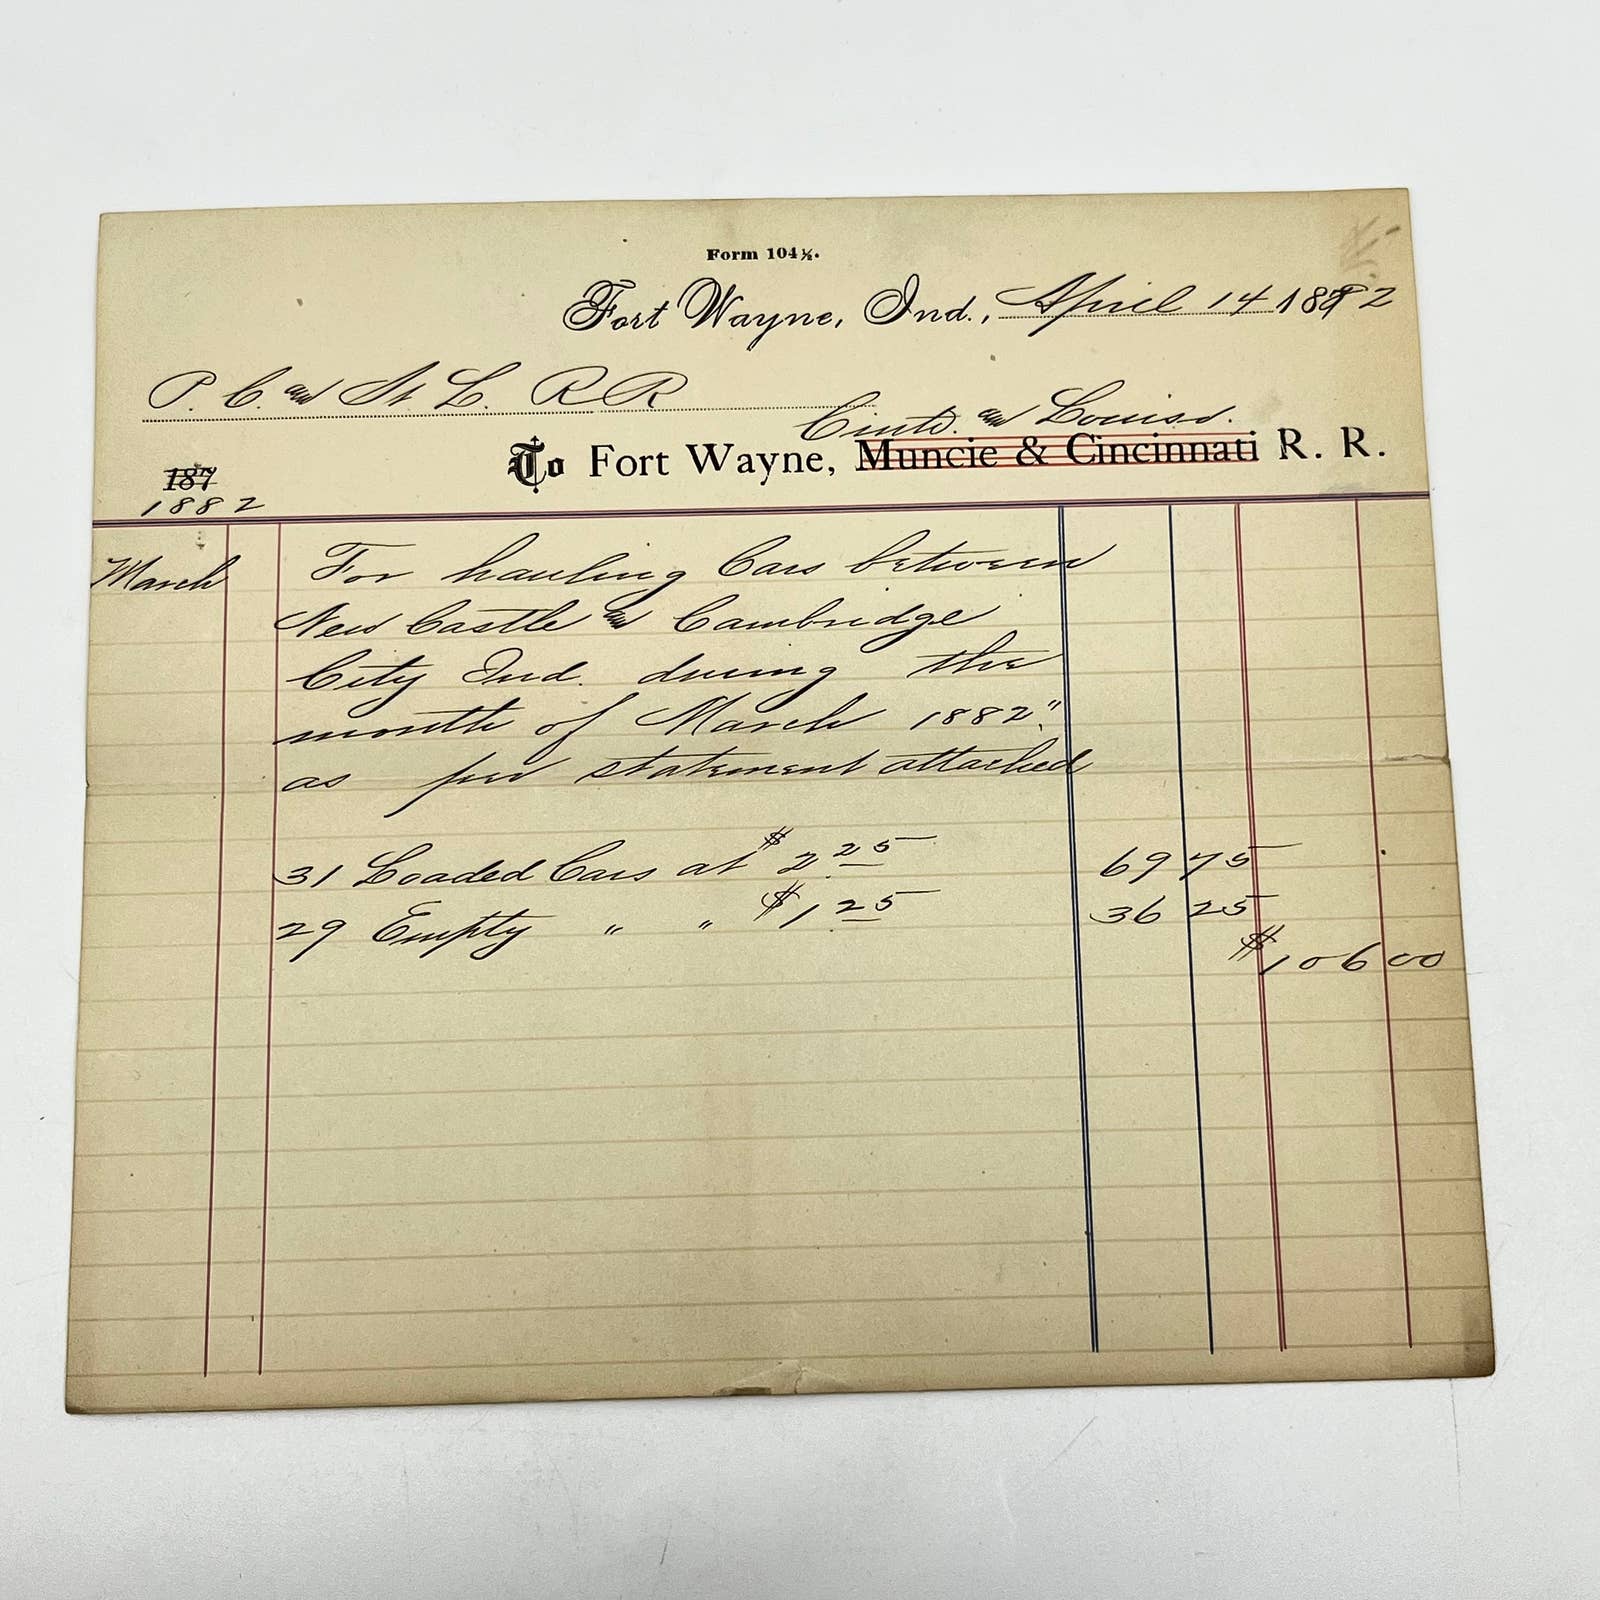 Form 104½.
Fort Wayne, Ind., April 14 1882
P. C. and St L. RR
Cinti. and Louisv.
To Fort Wayne, Muncie & Cincinnati R. R.
187
1882
March For hauling Cars between
New Castle and Cambridge
City Ind. during the
month of March 1882"
as per statement attached
31 Loaded Cars at $2.25 69 75
29 Empty " " $1.25 36 25
$106 00